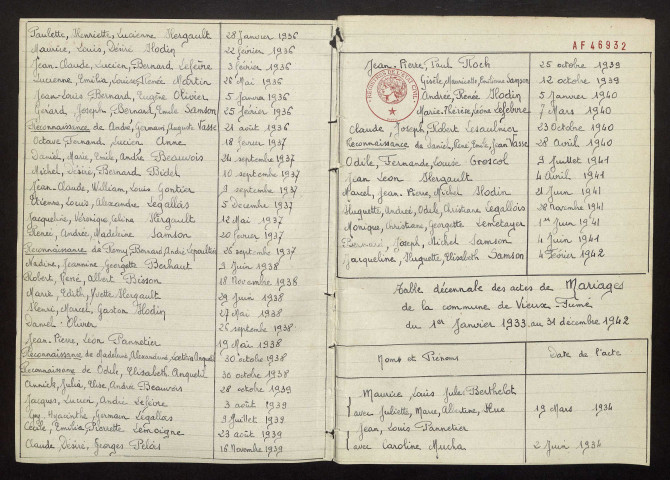 Paulette, Henriette, Lucienne Hergault 28 Janvier 1936
Maurice, Louis, Désiré Hodin 22 février 1936
Jean-Claude, Lucien, Bernard Lefèvre 3 février 1936
Lucienne, Emilia, Louise, Renée Martin 26 Mai 1936
Jean-Louis Bernard, Eugène Olivier 5 Janvier 1936
Gérard Joseph, Bernard, Emile Samson 25 février 1936
Reconnaissance de André, Germain, Auguste Vasse 21 août 1936
Octave Fernand, Lucien Anne 18 février 1937
Daniel, Marie, Emile, André Beauvois 24 septembre 1937
Michel, Désiré, Bernard Bidel 10 septembre 1937
Jean-Claude, William, Louis Gontier 9 septembre 1937
Etienne, Louis, Alexandre Legallais 5 décembre 1937
Jacqueline, Véronique, Céline Hergault 12 Mai 1937
Renée, Andrée, Madeleine Samson 20 février 1937
Reconnaissance de Rémy, Bernard, André Lepaultier 26 septembre 1937
Nadine, Jeannine Georgette Berhaut 9 Juin 1938
Robert, René, Albert Bisson 18 Novembre 1938
Marie, Edith, Yvette Hergault 29 Juin 1938
Henri, Marcel, Gaston Hodin 27 Mai 1938
Daniel Olivier 26 septembre 1938
Jean-Pierre, Léon Pannetier 19 Mai 1938
Reconnaissance de Madeleine Alexandrine, Laetitia Anquetil 30 octobre 1938
Reconnaissance de Odile, Elisabeth Anquetil 30 octobre 1938
Annick, Julia, Elise, André Beauvois 28 octobre 1939
Jacques, Lucien, André Lefèvre 3 août 1939
Guy, Hyacinthe, Germain Legallais 9 Juillet 1939
Cécile, Emilia, Pierrette Lemoigne 23 août 1939
Claude, Désiré, Georges Pelais 16 Novembre 1939
AF46932
Jean-Pierre, Paul Roch 25 octobre 1939
Gisèle, Mauricette, Emilienne Samson 12 octobre 1939
Andrée, Renée Hodin 5 Janvier 1940
Marie-Thérèse, Léone Lefebvre 7 Mars 1940
Claude, Joseph, Robert Lesaulnier 23 octobre 1940
Reconnaissance de Daniel, René, Emile, Jean Vasse 28 Avril 1940
Odile, Fernande, Louise Groscol 9 Juillet 1941
Jean Léon Hergault 4 Avril 1941
Marcel, Jean-Pierre, Michel Hodin 21 Juin 1941
Huguette, Andrée, Odile, Christiane Legallois 28 Novembre 1941
Monique, Christiane, Georgette Lemetayer 1er Juin 1941
Bernard, Joseph, Michel Samson 4 Juin 1941
Jacqueline, Huguette, Elisabeth Samson 4 Février 1942
Table décennale des actes de Mariages
de la commune de Vieux-Fumé
du 1er Janvier 1933 au 31 décembre 1942
Noms et Prénoms Date de l'acte
Maurice Louis Jules Berthelot
avec Juliette, Marie, Albertine, Hue 19 Mars 1934
Jean, Louis Pannetier
avec Caroline Mucha 2 Juin 1934